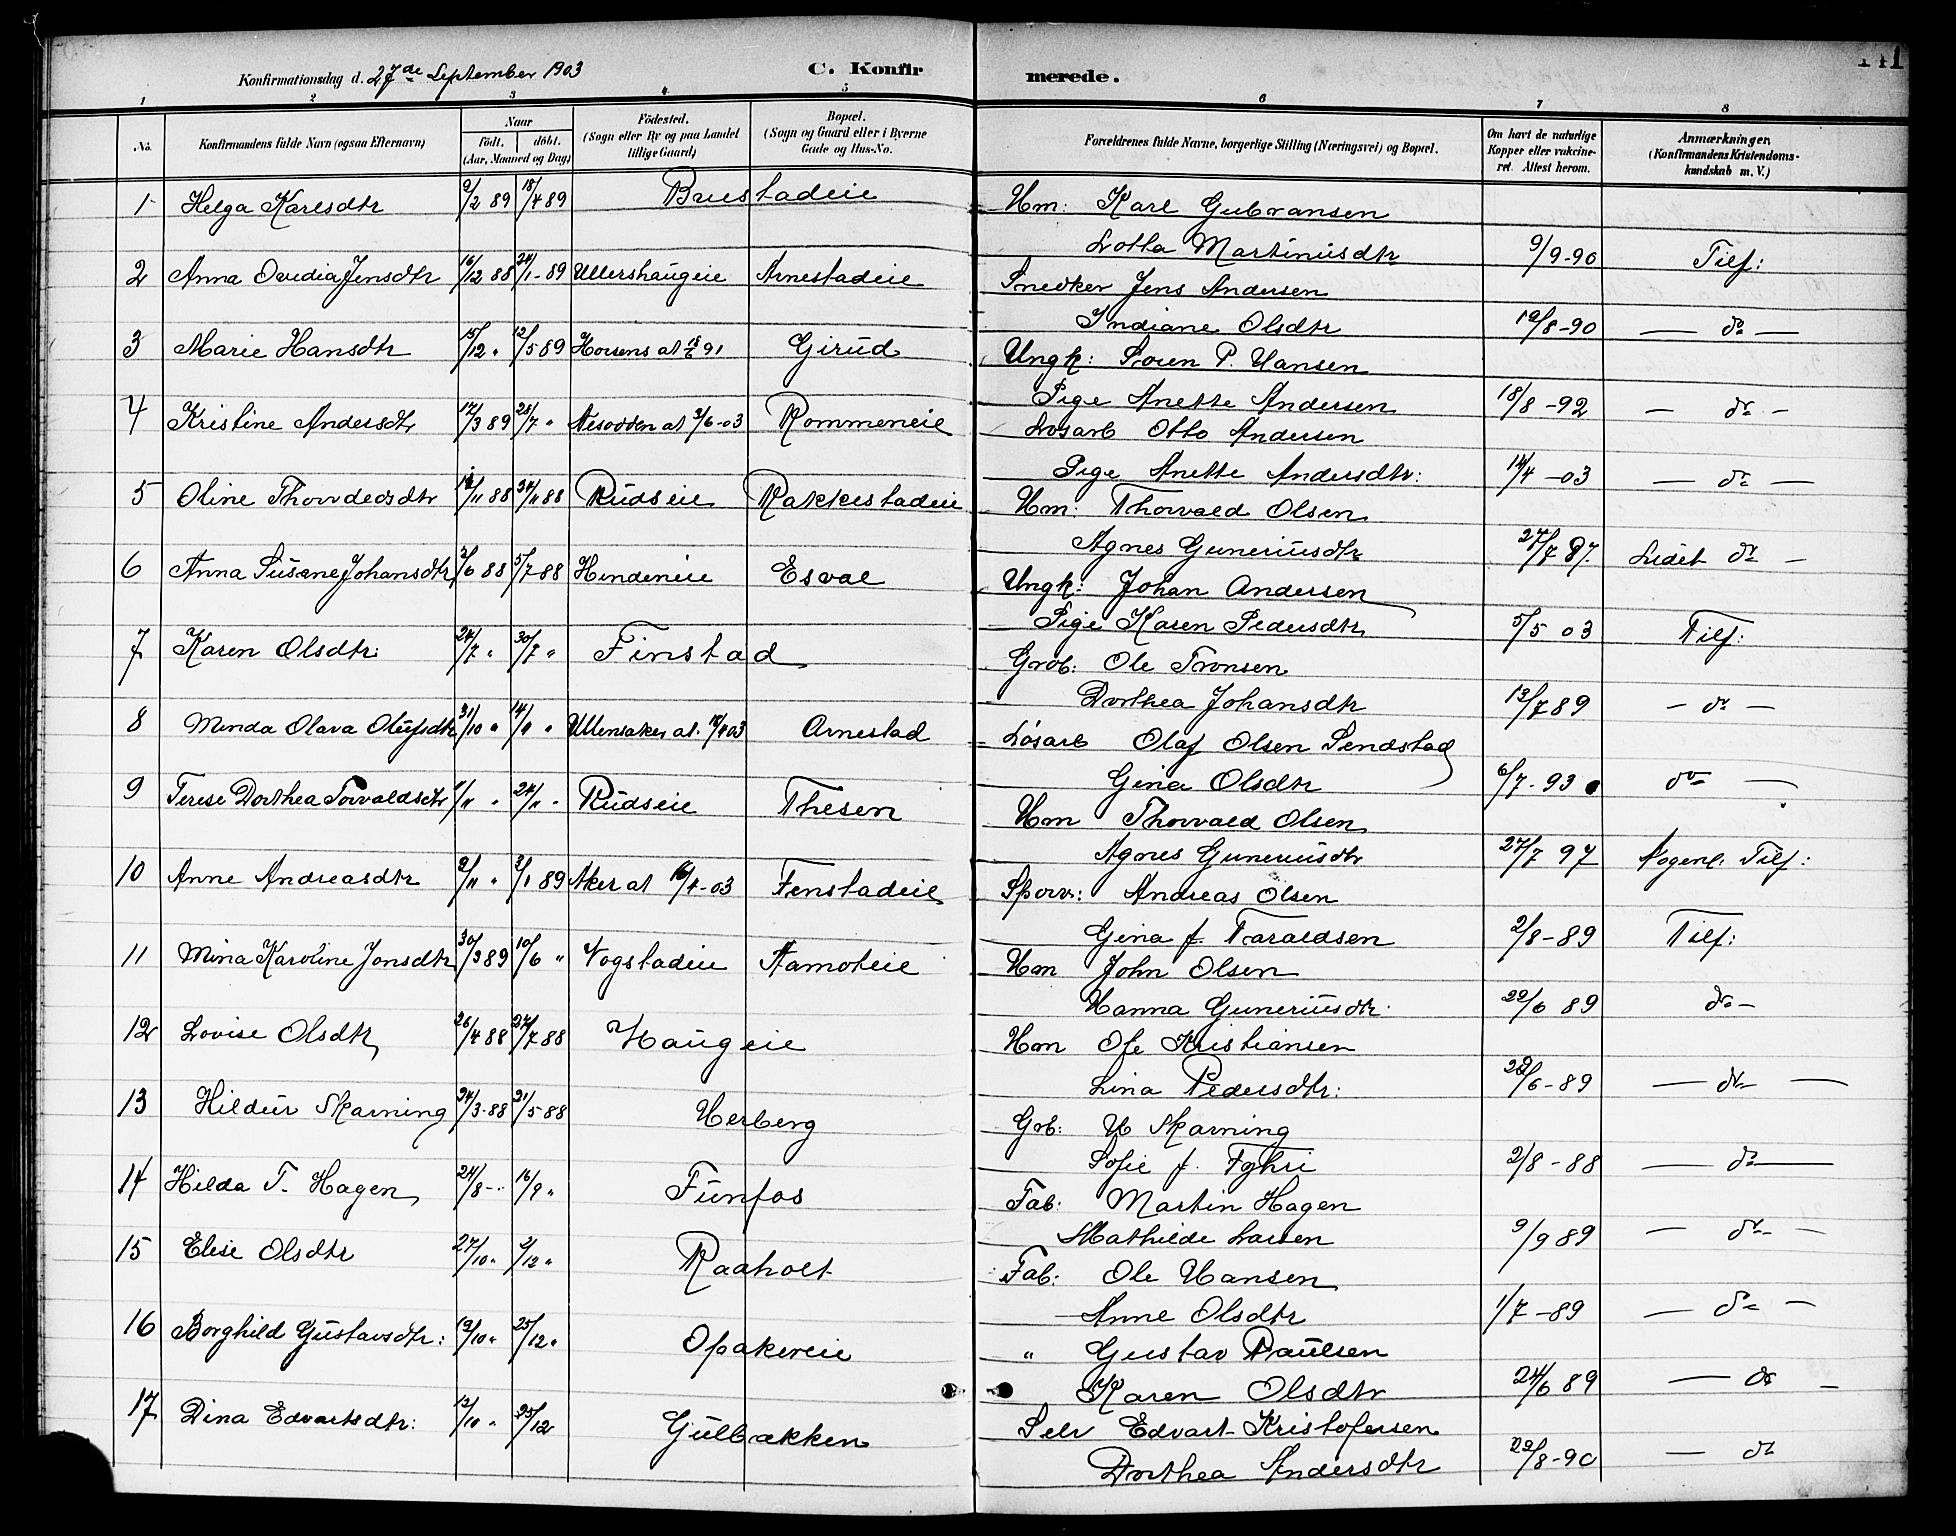 Konfirmationsdag d. 27de September 1903 C. Konfir
merede. 141
1 2 3 4 5 6 7 8
No. Konfirmandens fulde Navn (ogsaa Efternavn) Naar født. døbt. (Aar, Maaned og Dag) Fødested. (Sogn eller By og paa Landet tillige Gaard) Bopæl. (Sogn og Gaard eller i Byerne Gade og Hus-No.
Forældrenes fulde Navne, borgerlige Stilling (Næringsvei) og Bopæl. Om havt de naturlige Kopper eller vakcineret. Attest herom. Anmærkninger. (Konfirmandens Kristendomskundskab m. V.)
1 Helga Karlsdtr 9/2 89 18/4 89 Brustadeie
Hm: Karl Gulbransen
Lotta Martinusdtr 9/9-90 Tilf:
2 Anna Ovidia Jensdtr 16/12 88 24/1-89 Ullershaugeie Arnestadeie
Snedker Jens Andersen
Indiane Olsdtr 19/8-90 — do —
3 Marie Hansdtr 15/12 " 12/5 89 Horsens at 91 Girud
Ungk: Søren P. Hansen
Pige Anette Andersen 18/8-92 — do —
4 Kristine Andersdtr 17/3 89 28/7 " Nesodden at 3/6-03 Rommeneie
Løsarb Otto Andersen
Pige Anette Andersdtr: 14/4-03 — do —
5 Oline Thorvdedsdtr 88 24/11 88 Rudseie Rakkestadeie
Hm: Thorvald Olsen
Agnes Guneriusdtr 27/7 97. Lidet do —
6 Anna Susane Johansdtr 2/6 88 5/7 88 Hendeneie Esval
Ungk: Johan Andersen
Pige Karen Pedersdtr 5/5 03 Tilf:
7 Karen Olsdtr: 24/7 " 30/7 " Finstad
Grdb: Ole Tronsen
Dorthea Johansdtr 13/7 89 — do —
8 Minda Olava Olufsdtr 31/10 " 14/11 " Ullensaker at. 03 Arnestad
Løsarb Olaf Olsen Sendstad
Gina Olsdtr 6/7-93 do —
9 Terese Dorthea Torvaldsdtr 1/11 " 24/11 " Rudseie Thesen
Hm Thorvald Olsen
Agnes Guneriusdtr 27/7 97 Nogenl. Tilf:
10 Anne Andreasdtr 9/11 " 2/1 89 Aker at 03 Finstadeie
Sporv: Andreas Olsen
Gina f. Taraldsen 2/8-89 Tilf:
11 Mina Karoline Jonsdtr 30/3 89 10/6 " Vogstadeie Aamoteie
Hm John Olsen
Hanna Guneriusdtr. 22/6 89 do —
12 Lovise Olsdtr 26/4 88 22/7 88 Haugeie
Hm Ole Kristiansen
Lina Pedersdtr: 22/6-89 — do —
13 Hildur Skarning 24/3-88 21/5-88 Herberg
Grb: H Skarning
Sofie f. Tghri 2/8-88 — do —
14 Hilda T. Hagen 24/8-" 16/9 " Funfos
Fab: Martin Hagen
Mathilde Larsen 9/9 89 — do —
15 Elise Olsdtr 27/10 " 2/12 " Raaholt
Fab: Ole Hansen
Anne Olsdtr 1/7-89 — do —
16 Borghild Gustavsdtr: 19/10 " 25/12 " Opakereie
" Gustav Paulsen
Karen Olsdtr 24/6 89 — do —
17 Dina Edvartsdtr: 12/10 " 25/12 Gulbækken
Selv Edvart Kristofersen
Dorthea Andersdtr 22/8-90 — do